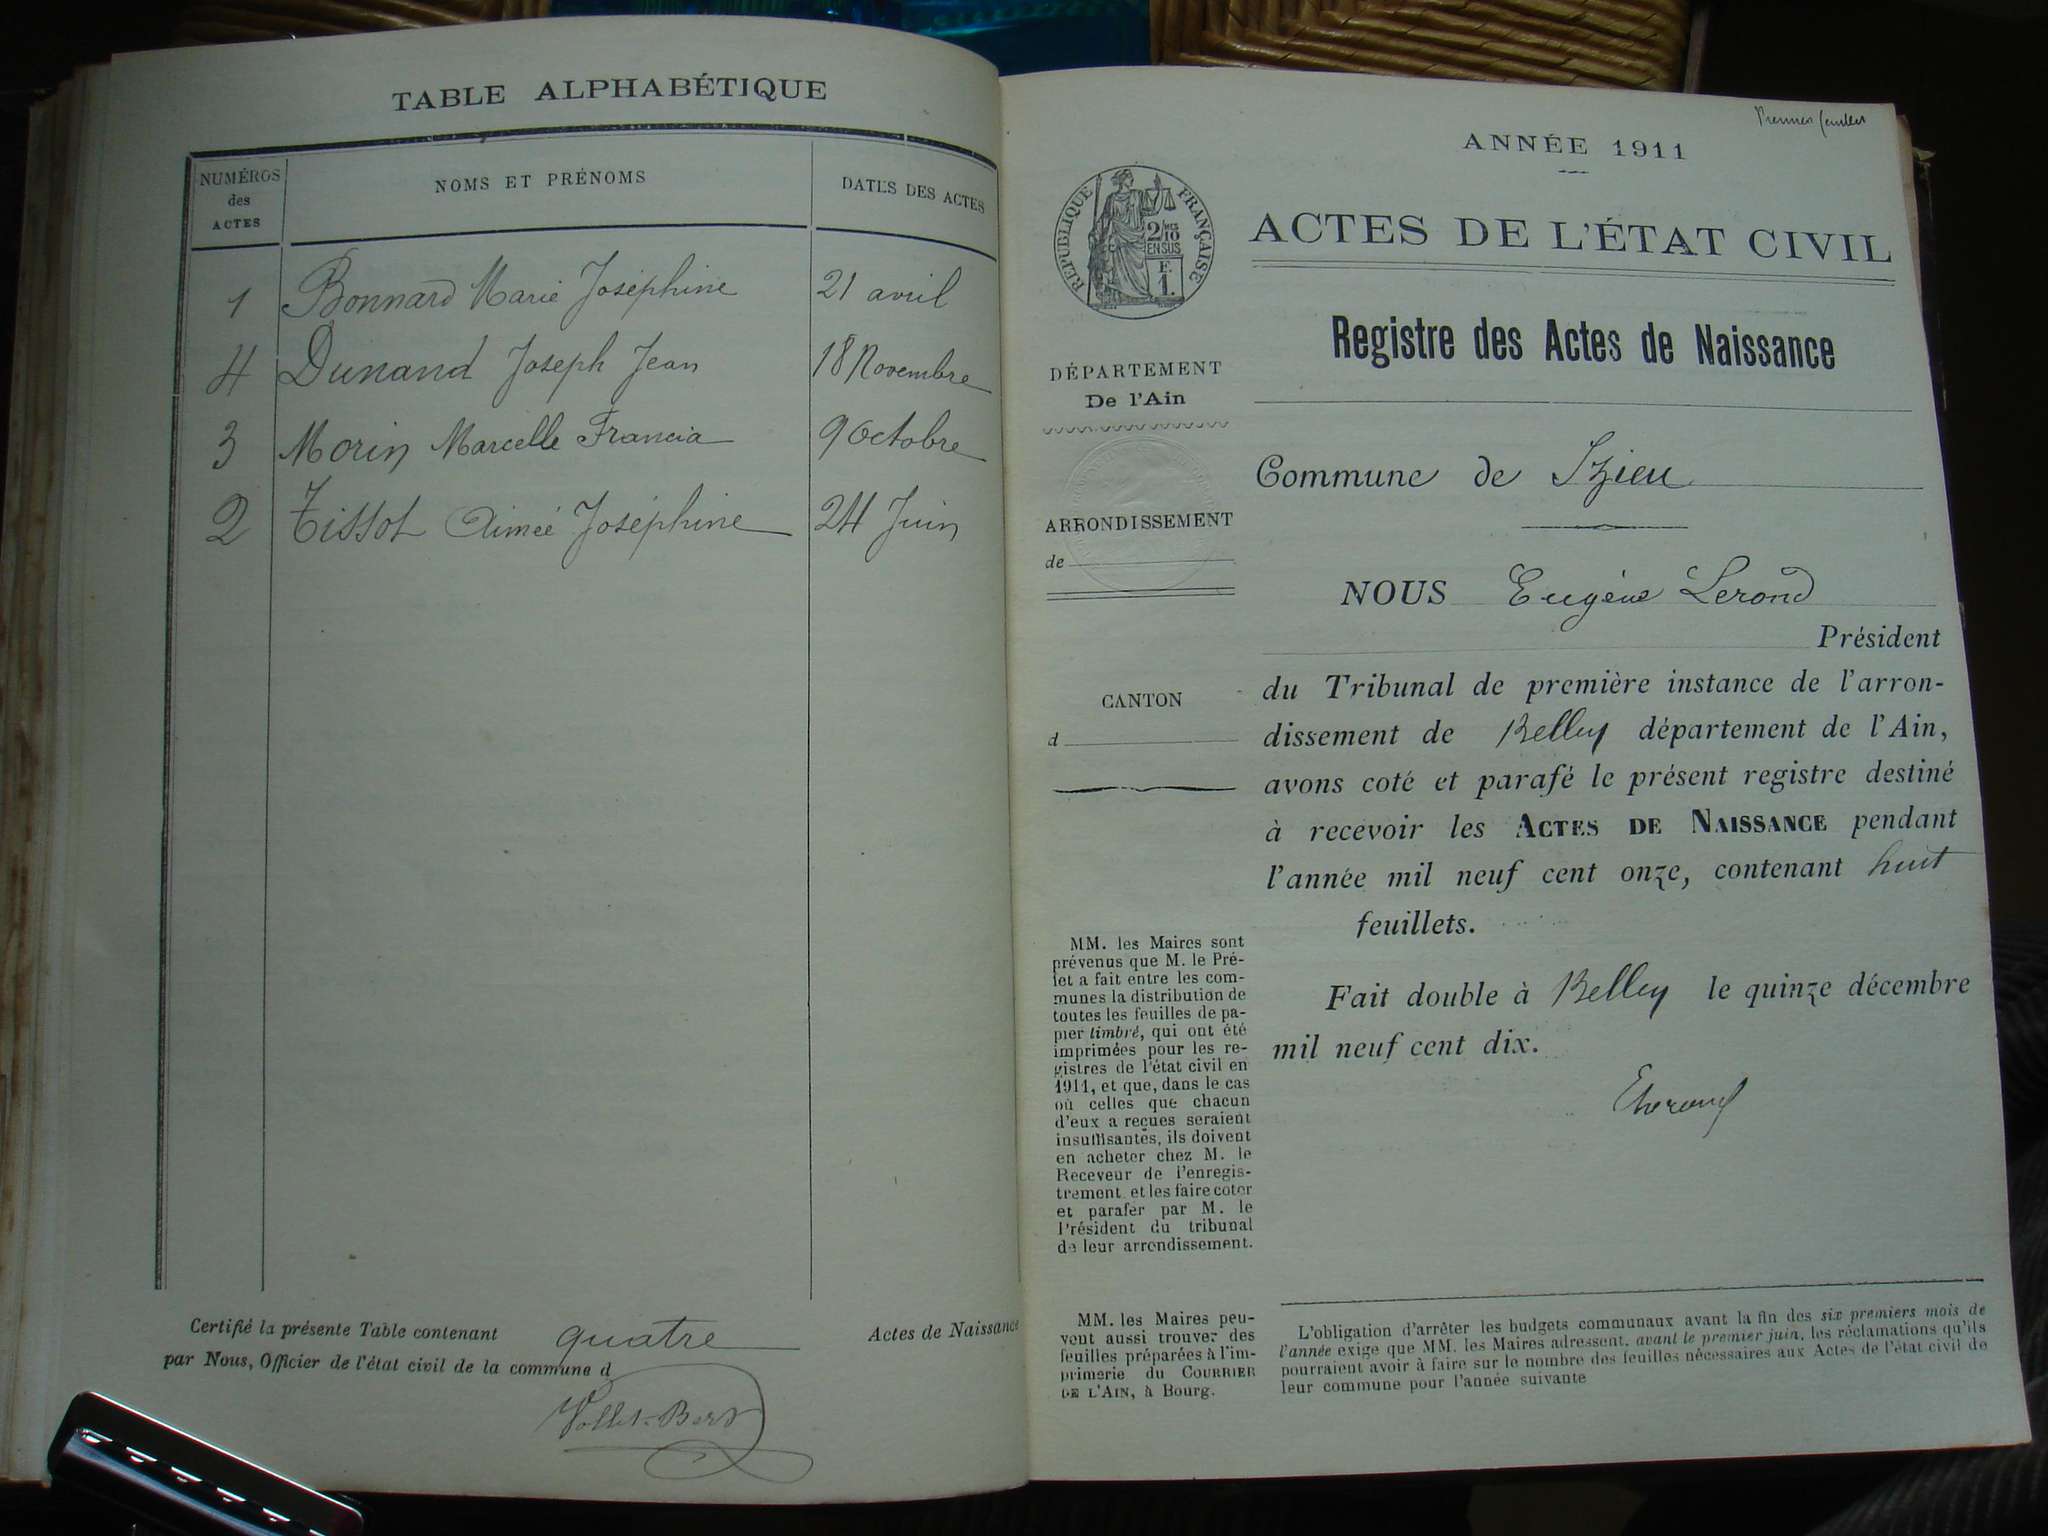 TABLE ALPHABÉTIQUE
NUMÉROS des ACTES
NOMS ET PRÉNOMS
DATES DES ACTES
1 Bonnard Marie Joséphine 21 avril
4 Dunand Joseph Jean 18 Novembre
3 Morin Marcelle Francia 9 Octobre
2 Tissot Aimée Joséphine 24 Juin
Certifié la présente Table contenant quatre Actes de Naissance
par Nous, Officier de l'état civil de la commune d
Premier feuillet
ANNÉE 1911
RÉPUBLIQUE FRANÇAISE
2/10 EN SUS
F. 1.
ACTES DE L'ÉTAT CIVIL
Registre des Actes de Naissance
DÉPARTEMENT
De l'Ain
Commune de Izieu
ARRONDISSEMENT
de
NOUS Eugène Lerond
Président
CANTON
d
du Tribunal de première instance de l'arron-
dissement de Belley département de l'Ain,
avons coté et parafé le présent registre destiné
à recevoir les ACTES DE NAISSANCE pendant
l'année mil neuf cent onze, contenant huit
feuillets.
Fait double à Belley le quinze décembre
mil neuf cent dix.
MM. les Maires sont
prévenus que M. le Pré-
fet a fait entre les com-
munes la distribution de
toutes les feuilles de pa-
pier timbré, qui ont été
imprimées pour les re-
gistres de l'état civil en
1911, et que, dans le cas
où celles que chacun
d'eux a reçues seraient
insuffisantes, ils doivent
en acheter chez M. le
Receveur de l'enregis-
trement et les faire coter
et parafer par M. le
Président du tribunal
de leur arrondissement.
MM. les Maires peu-
vent aussi trouver des
feuilles préparées à l'im-
primerie du COURRIER
DE L'AIN, à Bourg.
L'obligation d'arrêter les budgets communaux avant la fin des six premiers mois de
l'année exige que MM. les Maires adressent, avant le premier juin, les réclamations qu'ils
pourraient avoir à faire sur le nombre des feuilles nécessaires aux Actes de l'état civil de
leur commune pour l'année suivante